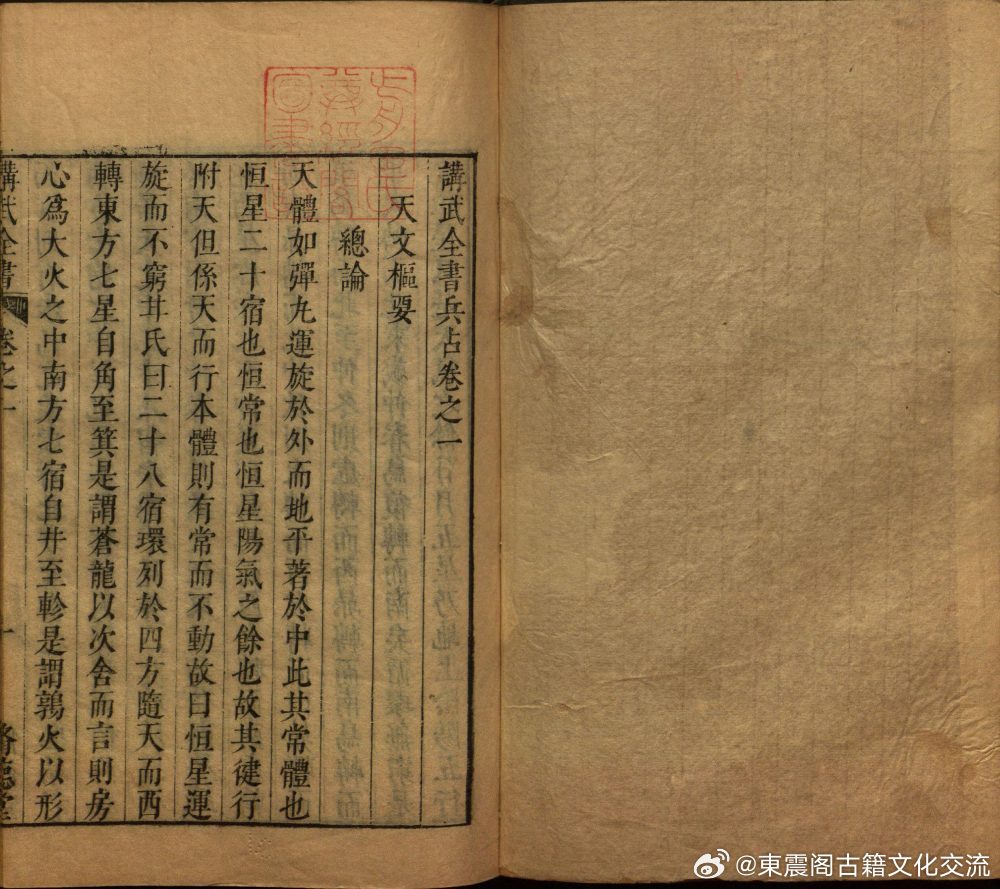 講武全書兵占卷之一
天文樞要
總論
天體如彈丸運旋於外而地平著於中此其常體也
恒星二十宿也恒常也恒星陽氣之餘也故其健行
附天但係天而行本體則有常而不動故曰恒星運
旋而不窮丼氏曰二十八宿環列於四方隨天而西
轉東方七星自角至箕是謂蒼龍以次舍而言則房
心為大火之中南方七宿自井至軫是謂鶉火以形
講武全書
卷之一
一
@東震阁古籍文化交流